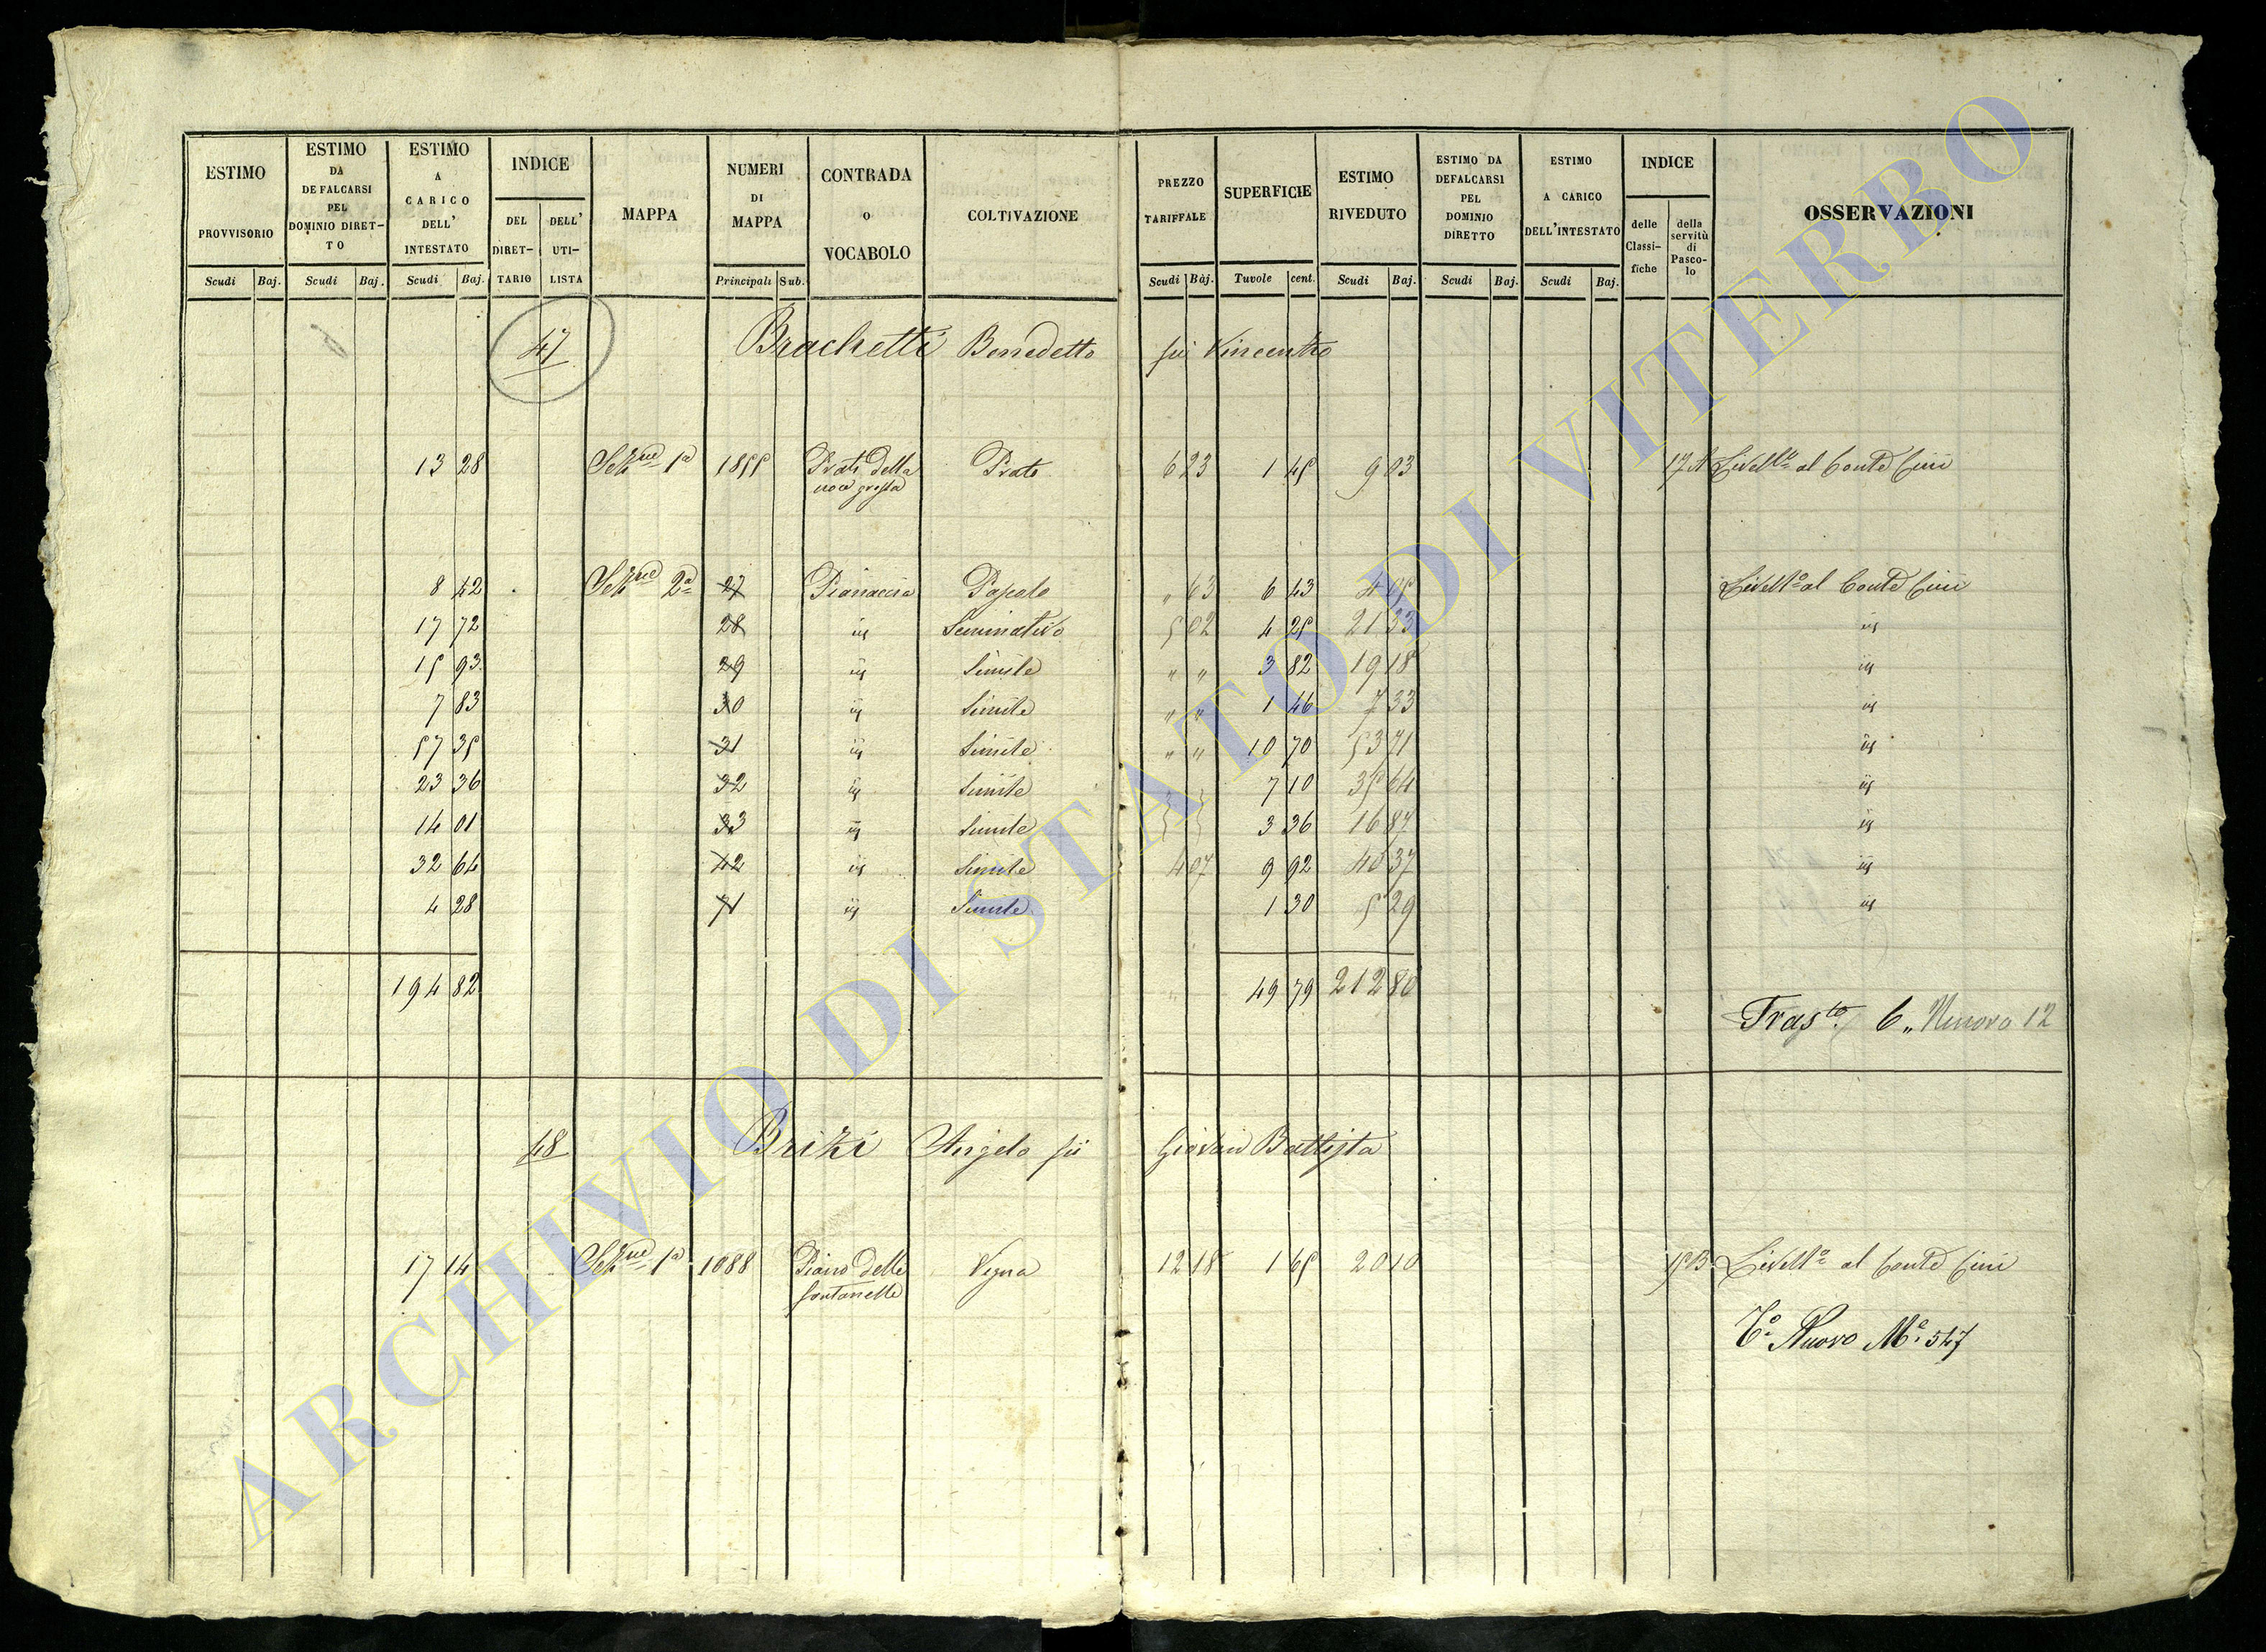 ESTIMO PROVVISORIO
ESTIMO DA DEFALCARSI PEL DOMINIO DIRET-TO
ESTIMO A CARICO DELL' INTESTATO
INDICE
DEL DIRET-TARIO
DELL' UTI-LISTA
MAPPA
NUMERI DI MAPPA
CONTRADA o VOCABOLO
COLTIVAZIONE
PREZZO TARIFFALE
SUPERFICIE
ESTIMO RIVEDUTO
ESTIMO DA DEFALCARSI PEL DOMINIO DIRETTO
ESTIMO A CARICO DELL'INTESTATO
INDICE
delle Classi-fiche
della servitù di Pasco-lo
OSSERVAZIONI
Scudi Baj. Scudi Baj. Scudi Baj. Principali Sub. Scudi Baj. Tavole cent. Scudi Baj. Scudi Baj. Scudi Baj.
47 Brachetti Benedetto fu Vincenzo
13 28 Sezne 1a 1855 Prati della noce grossa Prato 6 23 1 45 9 03 17 A Livello al Conte Cini
8 42 Sezne 2a 27 Pianaccia Pascolo " 63 6 43 4 05 Livello al Conte Cini
17 72 28 id Seminativo 5 02 4 25 21 33 id
15 93 29 id Simile " " 3 82 19 18 id
7 83 30 id Simile " " 1 46 7 33 id
57 35 31 id Simile " " 10 70 53 71 id
23 36 32 id Simile 7 10 35 64 id
14 01 33 id Simile 3 36 16 87 id
32 64 42 id Simile 4 07 9 92 40 37 id
4 28 71 id Simile 1 30 5 29 id
194 82 49 79 212 80
Trasto 6 " Nuovo 12
48 Brizi Angelo fu Giovan Battista
17 14 Sezne 1a 1088 Piano delle fontanelle Vigna 12 18 1 65 20 10 15 B Livello al Conte Cini
To Nuovo No 547
ARCHIVIO DI STATO DI VITERBO